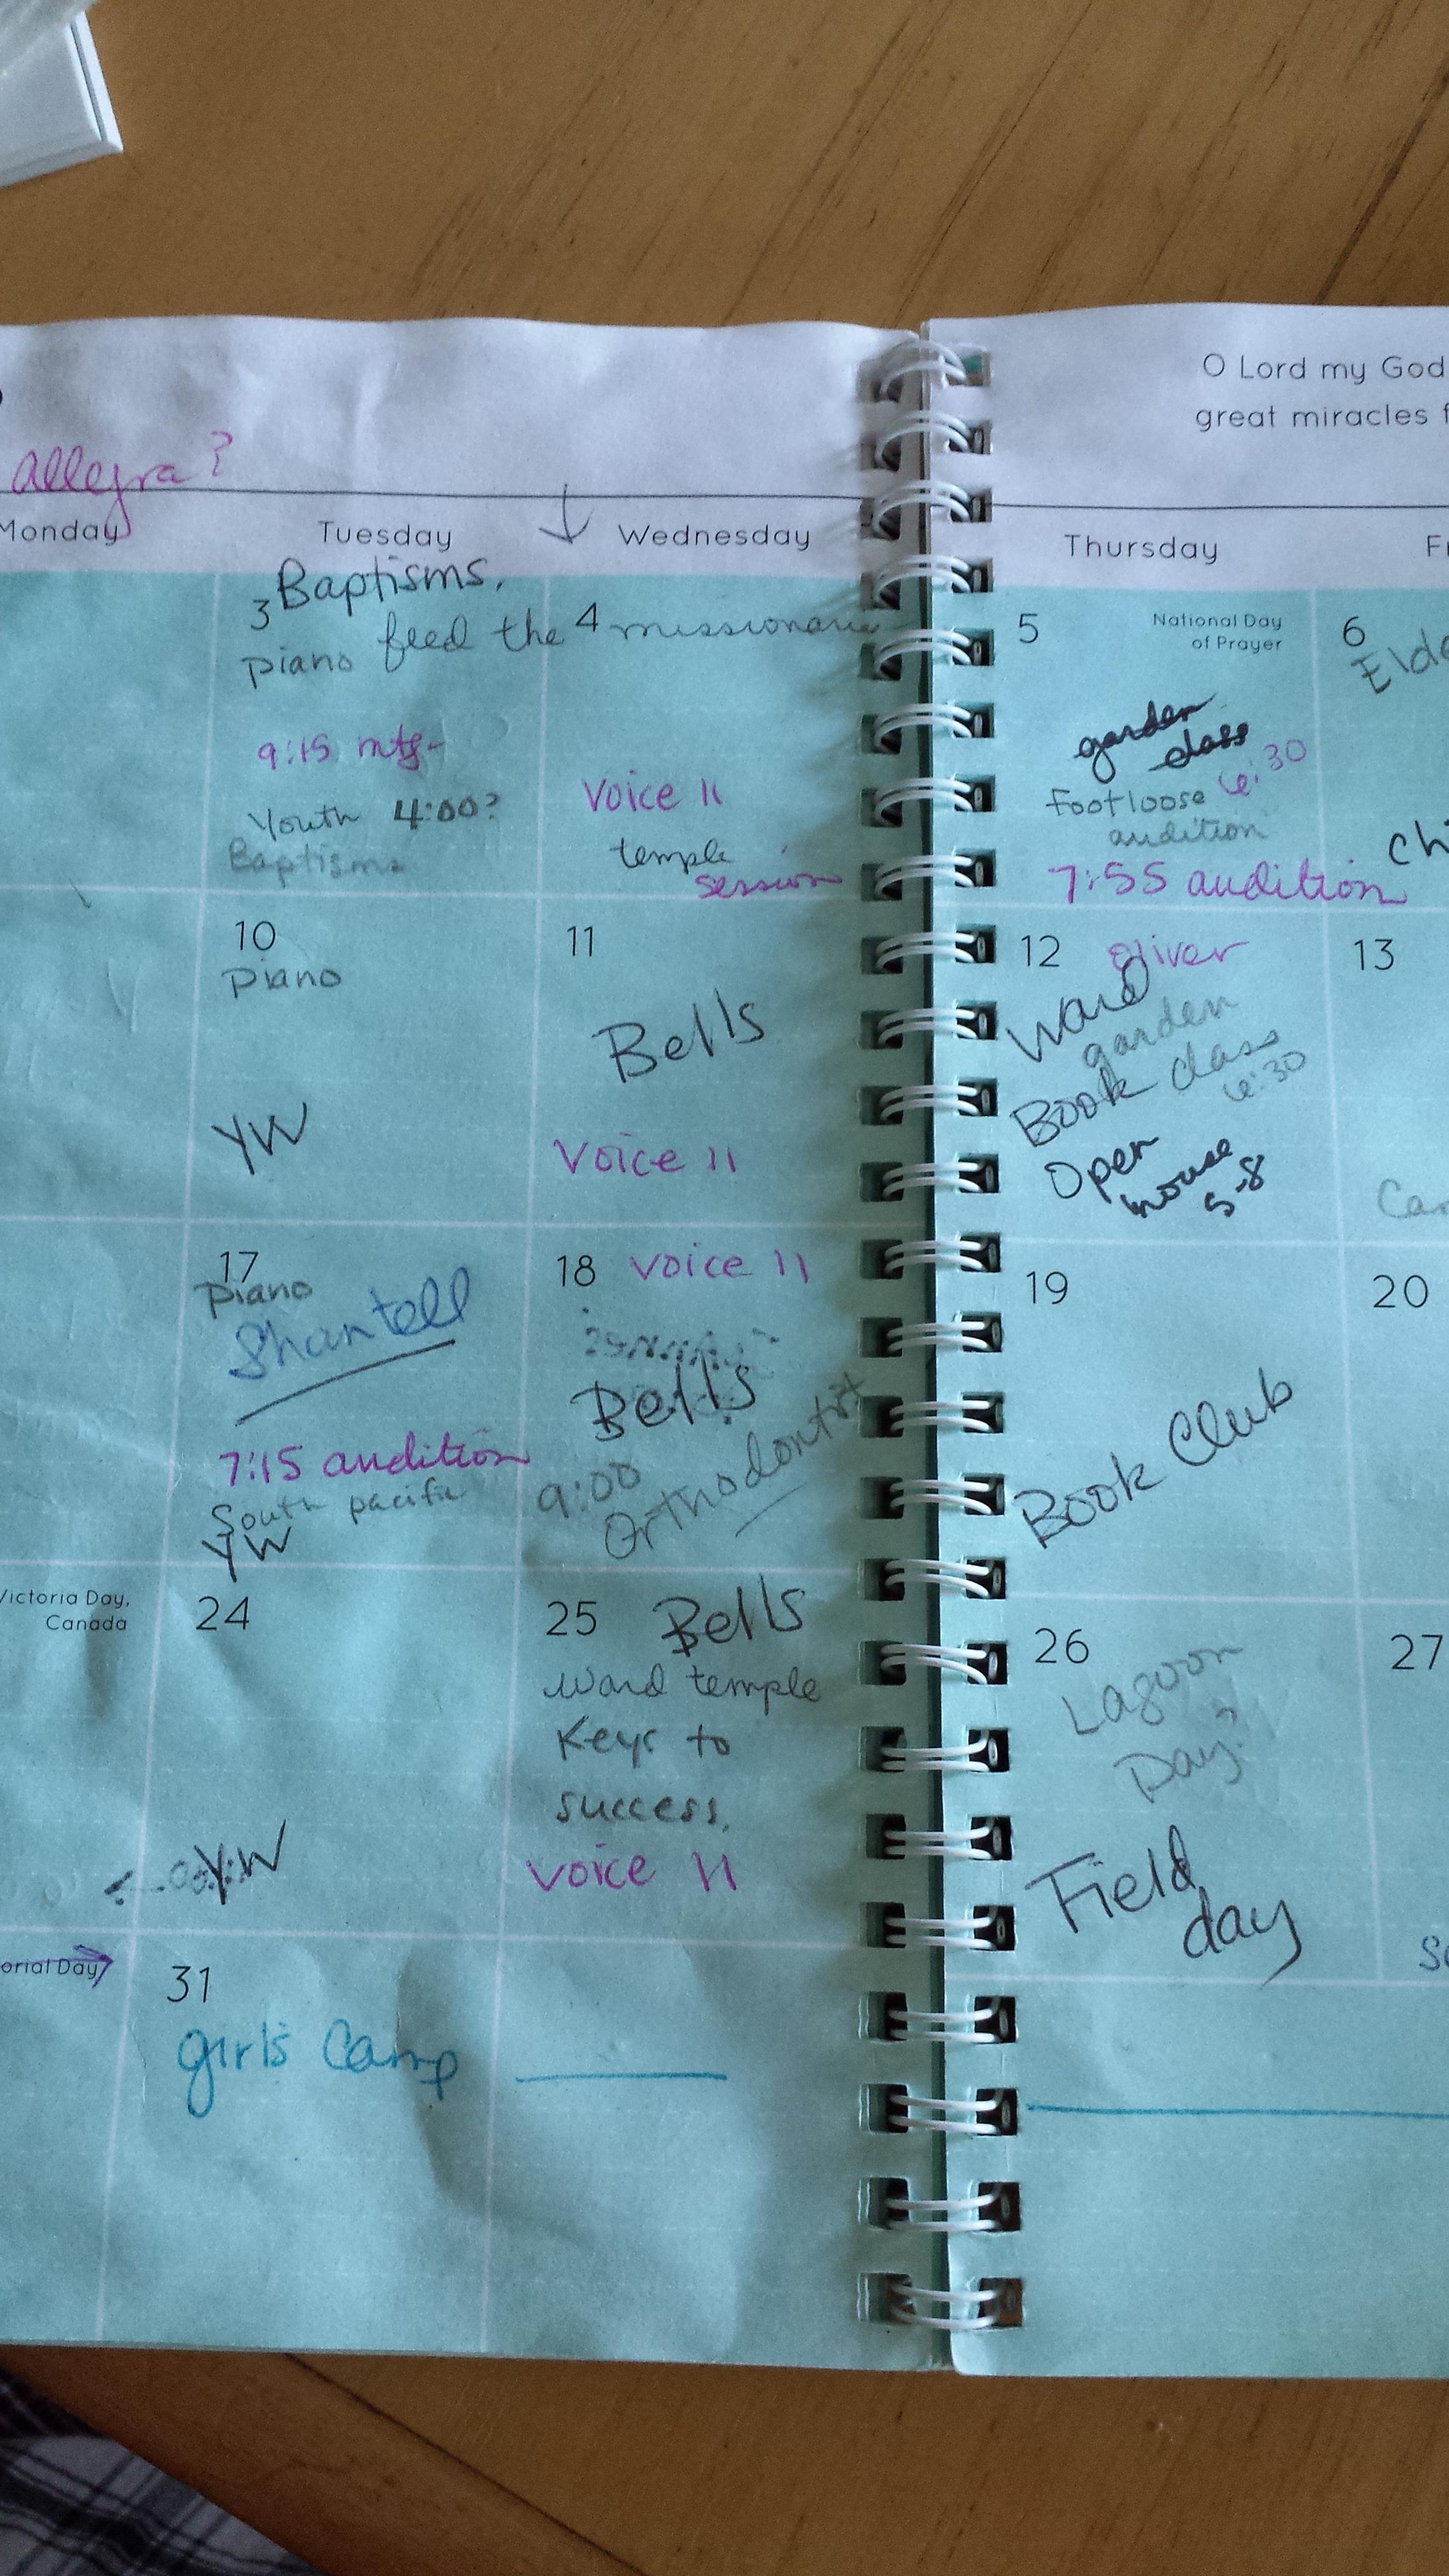 O Lord my God
great miracles f
allegra?
Monday
Tuesday
Wednesday
Thursday
3 Baptisms,
feed the missionaries
piano
9:15 mtg-
Youth 4:00?
Baptisms
4
Voice 11
temple
session
5
National Day
of Prayer
garden
class
6:30
Footloose
audition
7:55 audition
6
10
Piano
YW
11
Bells
Voice 11
12 oliver
Ward
garden
Book class
6:30
Open
House
5-8
13
17
Piano
Shantell
7:15 audition
South pacific
YW
18 Voice 11
Bells
9:00
Orthodontist
19
Book Club
20
Victoria Day,
Canada
24
YW
25 Bells
Ward temple
Keys to
success,
Voice 11
26
Lagoon
Day?
Field
day
27
orial Day
31
girls Camp